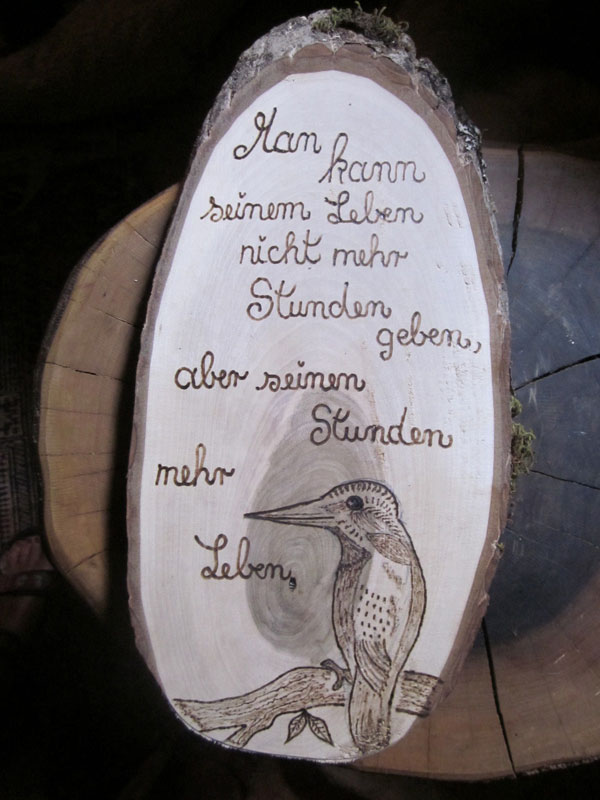 Man
kann
seinem Leben
nicht mehr
Stunden
geben,
aber seinen
Stunden
mehr
Leben.